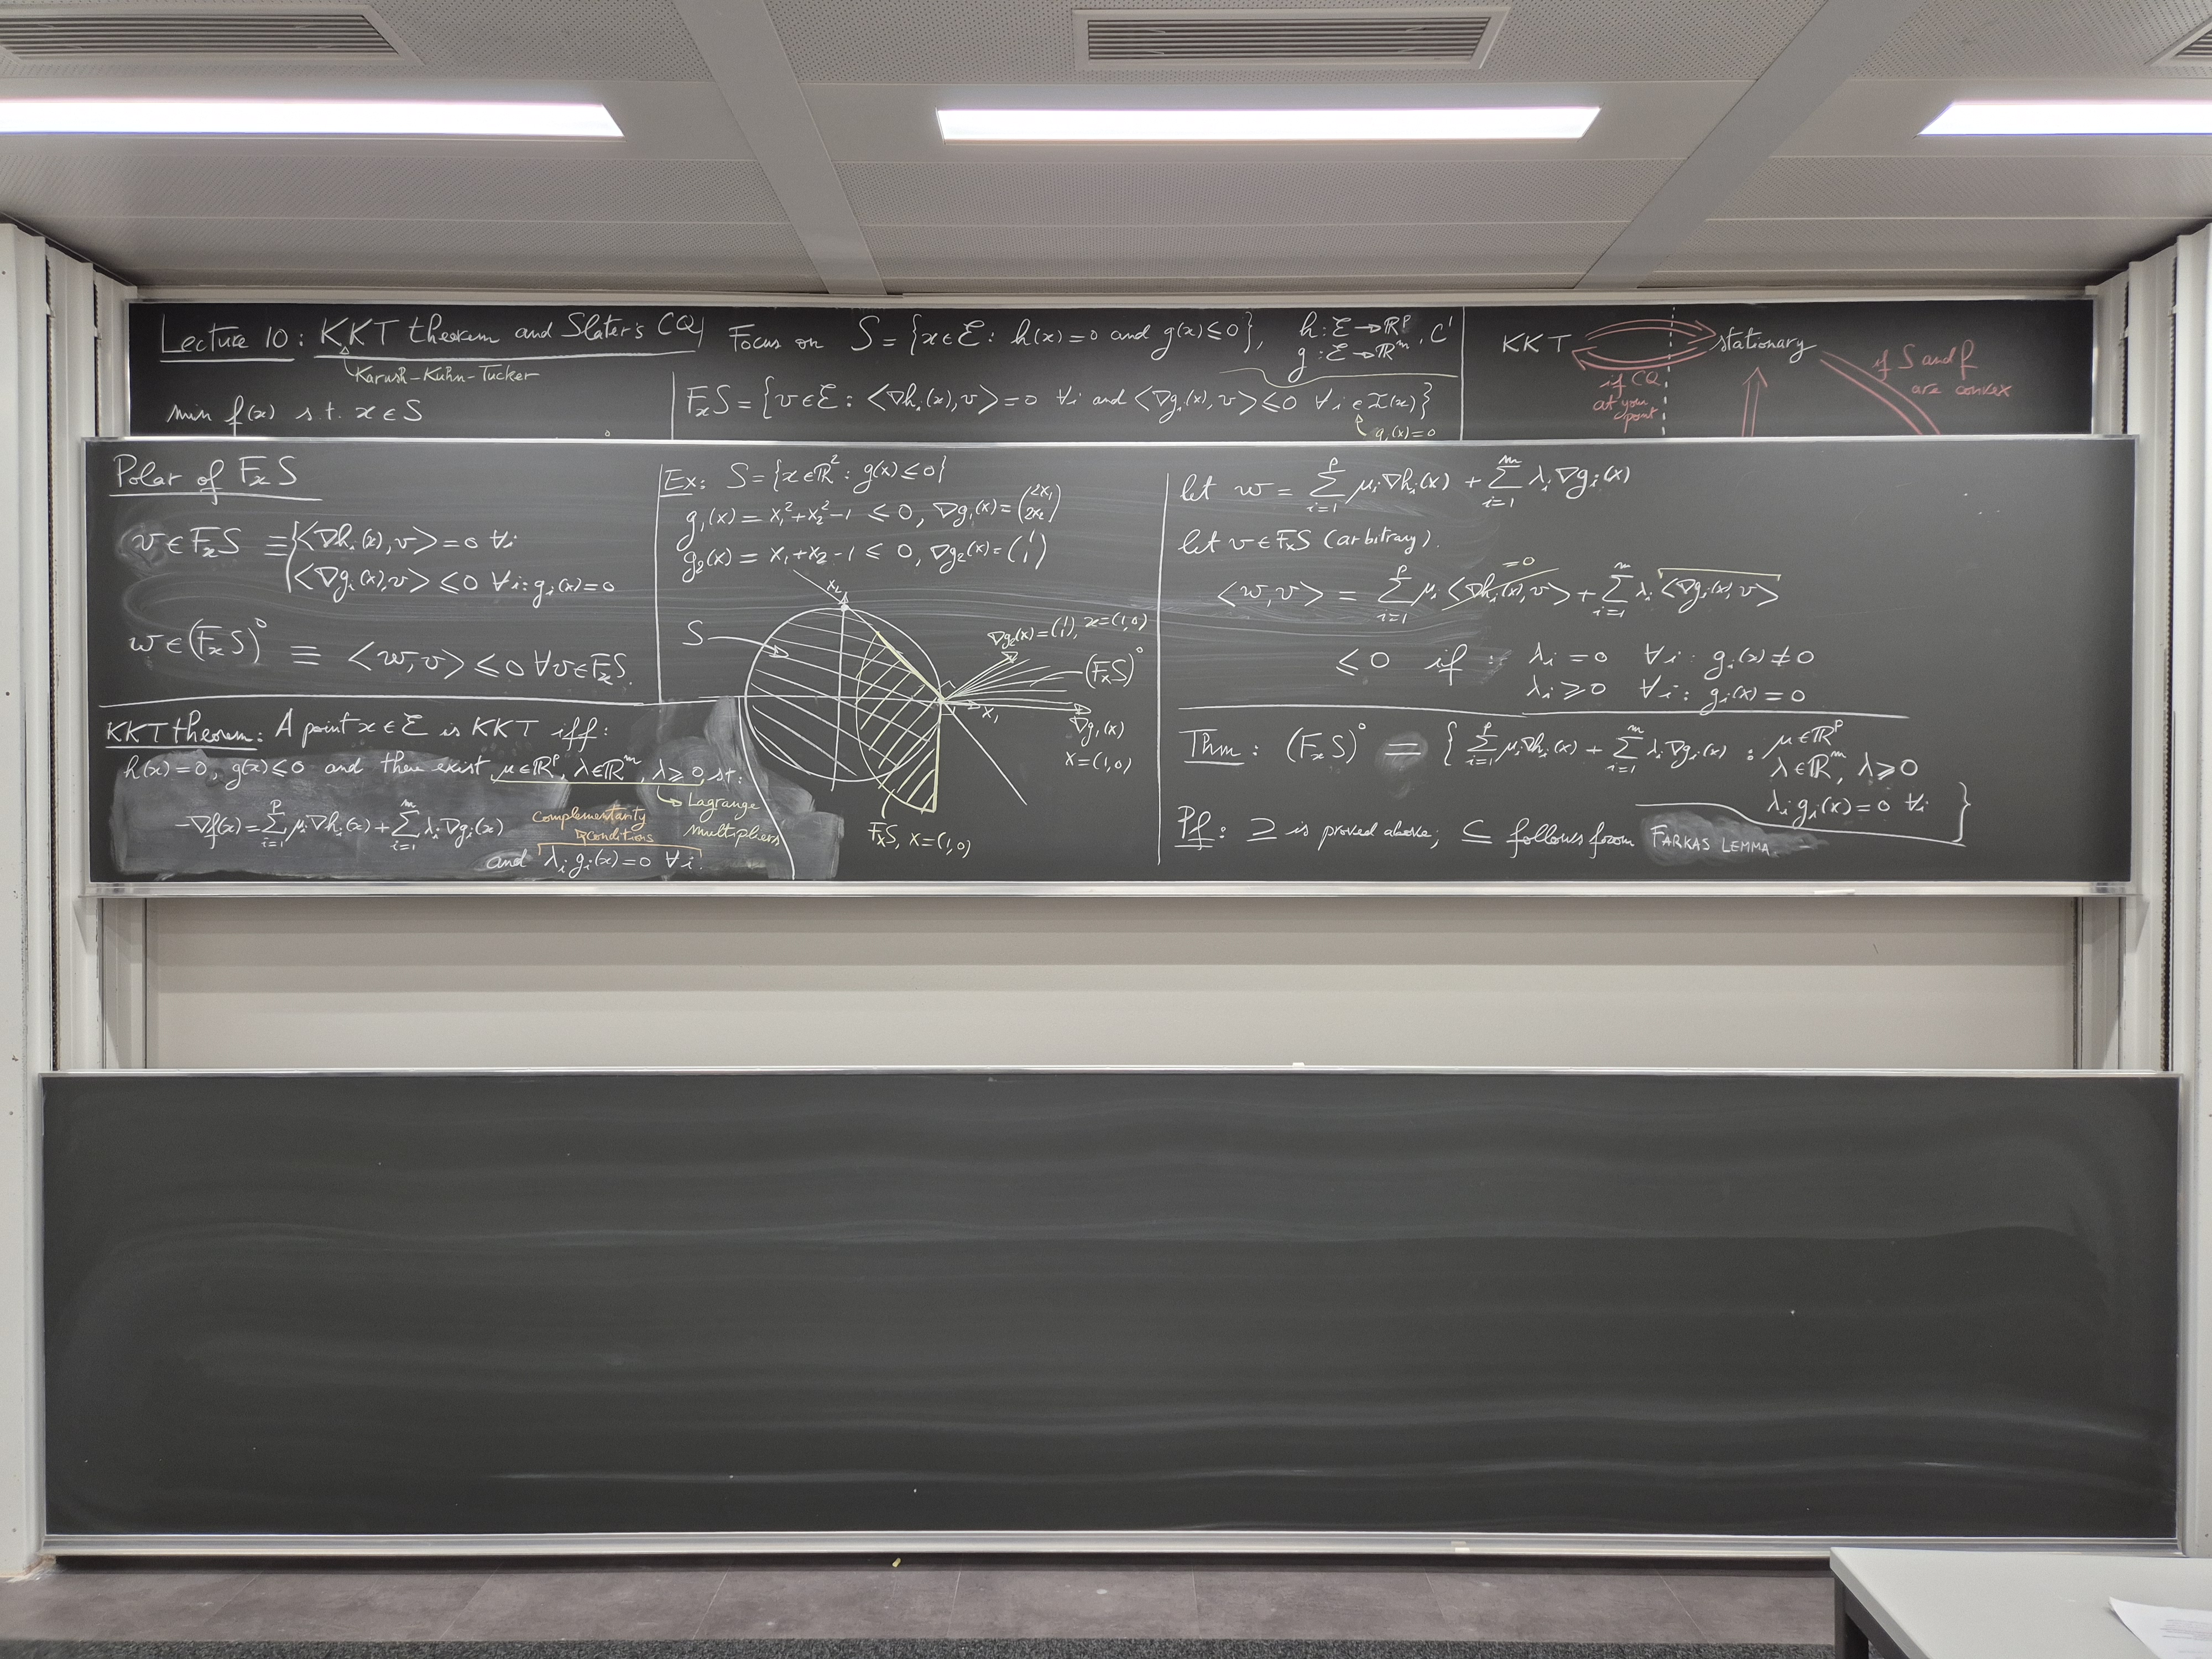 Lecture 10: KKT theorem and Slater's CQ
Karush-Kuhn-Tucker
min f(x) s.t. x ∈ S
Focus on S = {x ∈ ℰ : h(x) = 0 and g(x) ≤ 0}, h: ℰ → ℝᵖ, C¹
g: ℰ → ℝᵐ
FₓS = {v ∈ ℰ : <∇hᵢ(x), v> = 0 ∀i and <∇gᵢ(x), v> ≤ 0 ∀i ∈ I(x)}
gᵢ(x) = 0
KKT stationary
if CQ
at your
point
if S and f
are convex
Polar of FₓS
v ∈ FₓS ≡ { <∇hᵢ(x), v> = 0 ∀i
<∇gᵢ(x), v> ≤ 0 ∀i: gᵢ(x) = 0
w ∈ (FₓS)° ≡ <w, v> ≤ 0 ∀v ∈ FₓS.
KKT theorem: A point x ∈ ℰ is KKT iff:
h(x) = 0, g(x) ≤ 0 and there exist μ ∈ ℝᵖ, λ ∈ ℝᵐ, λ ≥ 0, st:
Lagrange
multipliers
-∇f(x) = Σᵢ₌₁ᵖ μᵢ∇hᵢ(x) + Σᵢ₌₁ᵐ λᵢ∇gᵢ(x)
Complementarity
conditions
and λᵢ gᵢ(x) = 0 ∀i.
Ex: S = {x ∈ ℝ² : g(x) ≤ 0}
g₁(x) = x₁² + x₂² - 1 ≤ 0, ∇g₁(x) = (2x₁ 2x₂)
g₂(x) = x₁ + x₂ - 1 ≤ 0, ∇g₂(x) = (1 1)
x₂
S
∇g₂(x) = (1 1), x = (1,0)
(FₓS)°
x₁
∇g₁(x)
x = (1,0)
FₓS, x = (1,0)
let w = Σᵢ₌₁ᵖ μᵢ∇hᵢ(x) + Σᵢ₌₁ᵐ λᵢ∇gᵢ(x)
let v ∈ FₓS (arbitrary).
= 0
<w, v> = Σᵢ₌₁ᵖ μᵢ <∇hᵢ(x), v> + Σᵢ₌₁ᵐ λᵢ <∇gᵢ(x), v>
≤ 0 if : λᵢ = 0 ∀i: gᵢ(x) ≠ 0
λᵢ ≥ 0 ∀i: gᵢ(x) = 0
Thm: (FₓS)° = { Σᵢ₌₁ᵖ μᵢ∇hᵢ(x) + Σᵢ₌₁ᵐ λᵢ∇gᵢ(x) : μ ∈ ℝᵖ
λ ∈ ℝᵐ, λ ≥ 0
λᵢ gᵢ(x) = 0 ∀i }
Pf: ⊇ is proved above; ⊆ follows from FARKAS LEMMA